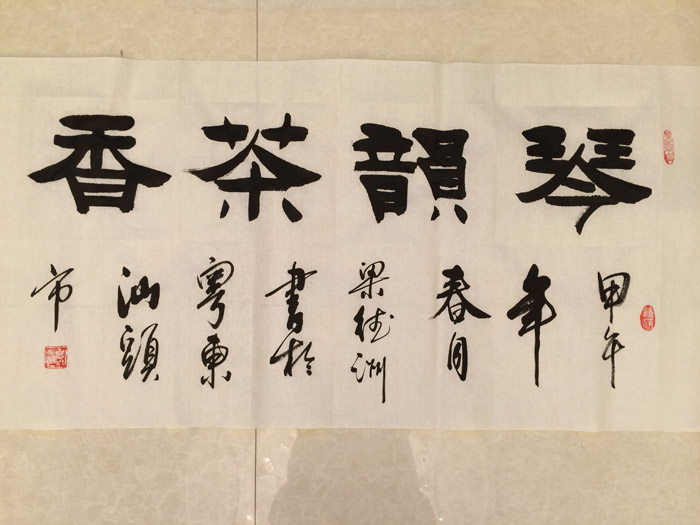 琴韻茶香
甲午
年
春月
梁德洲
書於
粤東
汕頭
市